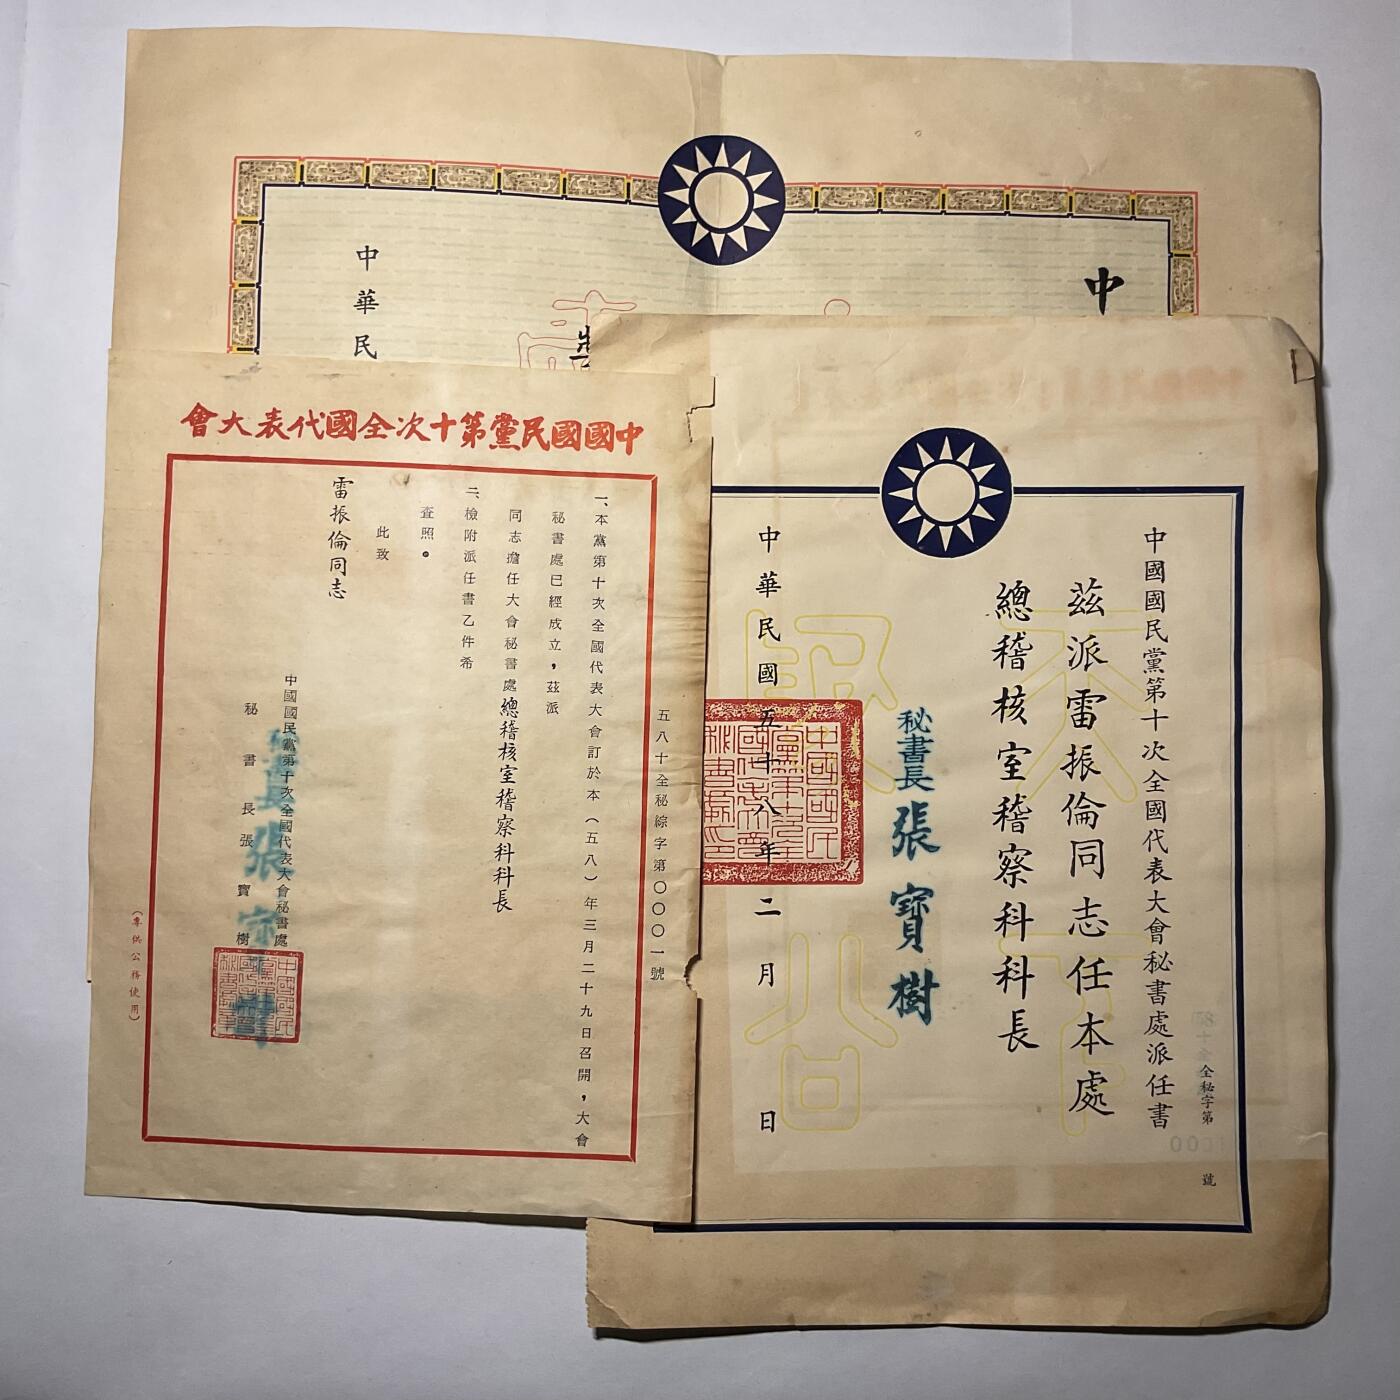 中
中華民
中國國民黨第十次全國代表大會
五八十全秘綜字第〇〇〇一號
一、本黨第十次全國代表大會訂於本（五八）年三月二十九日召開，大會
秘書處已經成立，茲派
同志擔任大會秘書處總稽核室稽察科科長
二、檢附派任書乙件希
查照。
此致
雷振倫同志
中國國民黨第十次全國代表大會秘書處
秘書長張寶樹
（專供公務使用）
中國國民黨第十次全國代表大會秘書處派任書
全秘字第
號
茲派雷振倫同志任本處
總稽核室稽察科科長
秘書長張寶樹
中華民國五十八年二月日
天下為公